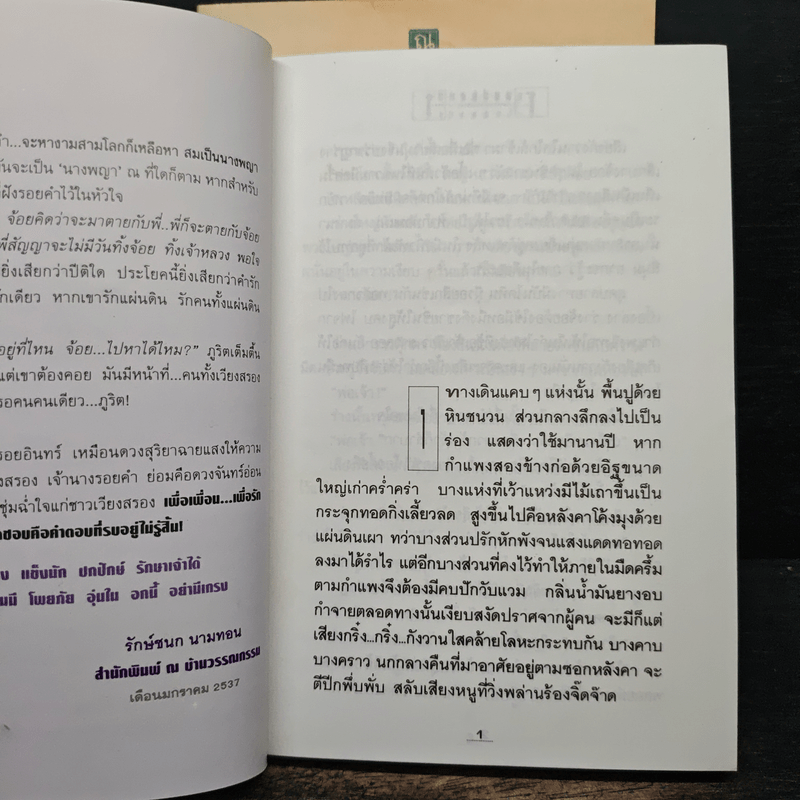 ณ
...จะหางามสามโลกก็เหลือหา สมเป็นนางพญา
จะเป็น ‘นางพญา’ ณ ที่ใดก็ตาม หากสำหรับ
ฝังรอยคำไว้ในหัวใจ
จ้อยคิดว่าจะมาตายกับพี่..พี่ก็จะตายกับจ้อย
พี่สัญญาจะไม่มีวันทิ้งจ้อย ทิ้งเจ้าหลวง พอใจ
ยิ่งเสียกว่าปีติใด ประโยคนี้ยิ่งเสียกว่าคำรัก
เดียว หากเขารักแผ่นดิน รักคนทั้งแผ่นดิน
อยู่ที่ไหน จ้อย...ไปหาได้ไหม?” ภูริตเต็มตื้น
แต่เขาต้องคอย มันมีหน้าที่...คนทั้งเวียงสรอง
รอคนคนเดียว...ภูริต!
รอยอินทร์ เหมือนดวงสุริยาฉายแสงให้ความ
สรอง เจ้านางรอยคำ ย่อมคือดวงจันทร์อ่อน
ชุ่มฉ่ำใจแก่ชาวเวียงสรอง เพื่อเพื่อน...เพื่อรัก
ชอบคือคำตอบที่รบอยู่ไม่รู้สิ้น!
แข็งนัก ปกปักษ์ รักษาเจ้าได้
โพยภัย อุ่นใน อกนี้ อย่ามีเกรง
รักษ์ชนก นามทอน
สำนักพิมพ์ ณ บ้านวรรณกรรม
เดือนมกราคม 2537
1 ทางเดินแคบๆ แห่งนั้น พื้นปูด้วย
หินชนวน ส่วนกลางลึกลงไปเป็น
ร่อง แสดงว่าใช้มานานปี หาก
กำแพงสองข้างก่อด้วยอิฐขนาด
ใหญ่เก่าคร่ำคร่า บางแห่งที่เว้าแหว่งมีไม้เถาขึ้นเป็น
กระจุกทอดกิ่งเลี้ยวลด สูงขึ้นไปคือหลังคาโค้งมุงด้วย
แผ่นดินเผา ทว่าบางส่วนปรักหักพังจนแสงแดดทอทอด
ลงมาได้รำไร แต่อีกบางส่วนที่คงไว้ทำให้ภายในมืดครึ้ม
ตามกำแพงจึงต้องมีคบปักวับแวม กลิ่นน้ำมันยางอบ
กำจายตลอดทางนั้นเงียบสงัดปราศจากผู้คน จะมีก็แต่
เสียงกริ๋ง...กริ๋ง...กังวานใสคล้ายโลหะกระทบกัน บางคาบ
บางคราว นกกลางคืนที่มาอาศัยอยู่ตามซอกหลังคา จะ
ตีปีกพึ่บพั่บ สลับเสียงหนูที่วิ่งพล่านร้องจิ๊ดจ๊าด
1